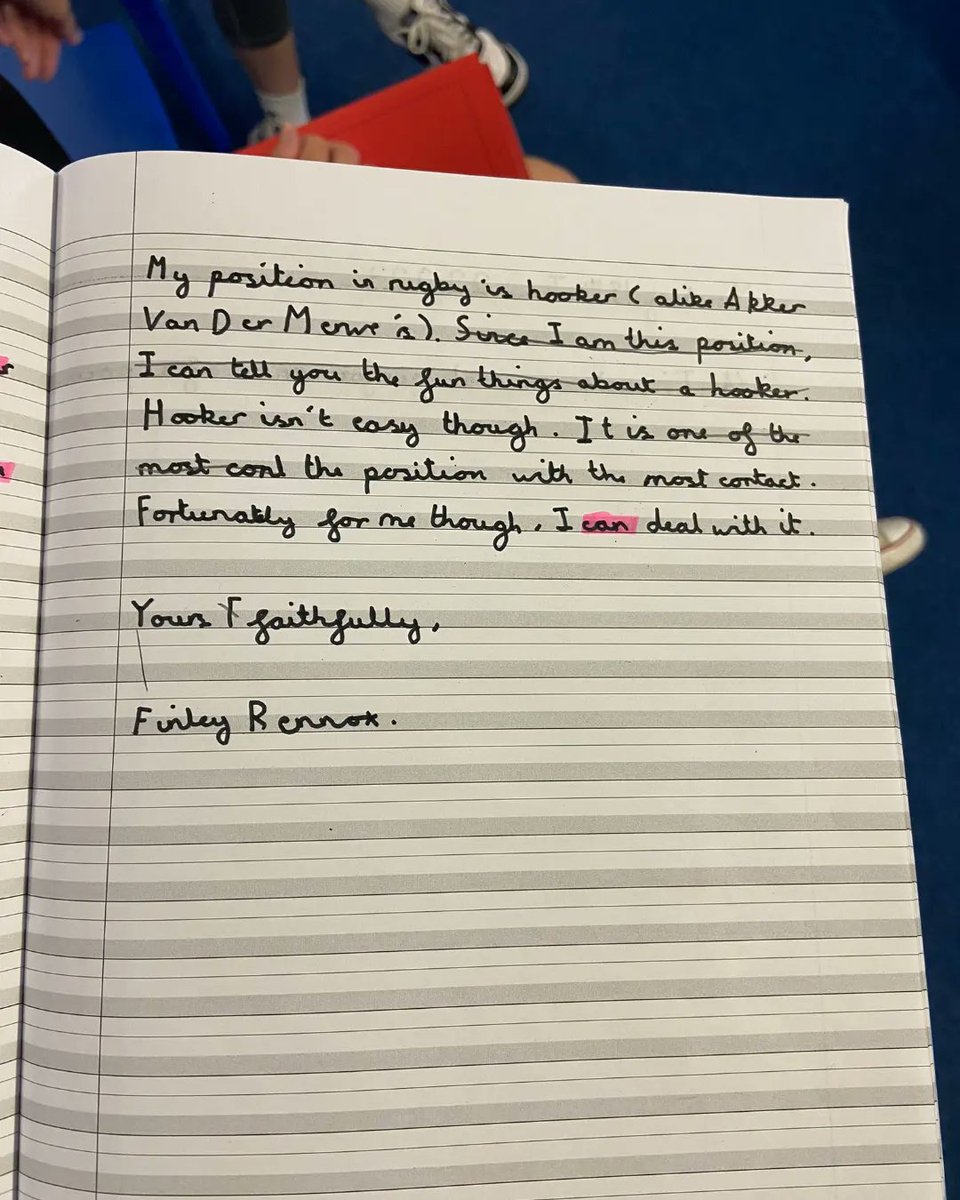 My position in rugby is hooker (alike Akker
Van Der Merwe's). Since I am this position,
I can tell you the fun things about a hooker.
Hooker isn't easy though. It is one of the
most cont the position with the most contact.
Fortunately for me though, I can deal with it.
Yours F faithfully,
Finley Rennox.